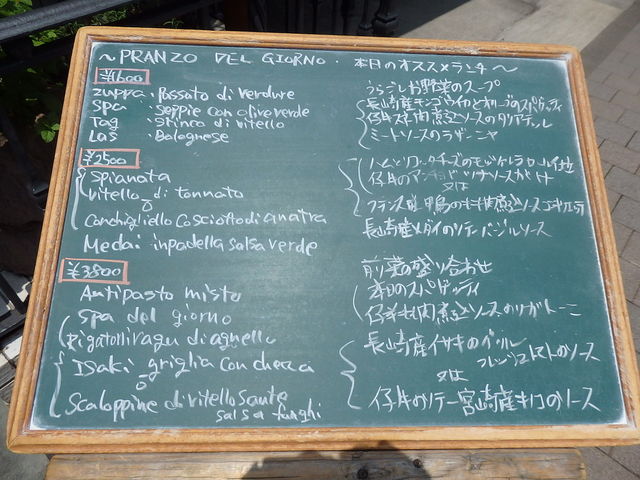 ～PRANZO DEL GIORNO・本日のオススメランチ～
¥1600
zuppa・Passato di verdure うらごしお野菜のスープ
Spa・Seppie con olive verde 長崎産モンゴウイカとオリーブのスパゲッティ
Tag・Stinco di vitello 仔牛スネ肉煮込ソースのタリアテッレ
Las・Bolognese ミートソースのラザーニャ
¥2500
Spianata
Vitello di tonnato 仔牛の ツナソースがけ
o 又は
Conchigliello Cosciotto di anatra フランス産鴨のモモ肉煮込ソース
Medai inpadella salsa verde 長崎産メダイのソテーバジルソース
¥3800
Antipasto misto 前菜の盛り合わせ
Spa del giorno 本日のスパゲッティ
Rigatolli ragu di agnello 仔羊モモ肉煮込ソースのリガトーニ
Isaki griglia con checca 長崎産イサキのグリル
フレッシュトマトのソース
o 又は
Scaloppine di vitello sante 仔牛のソテー宮崎産キノコのソース
salsa funghi